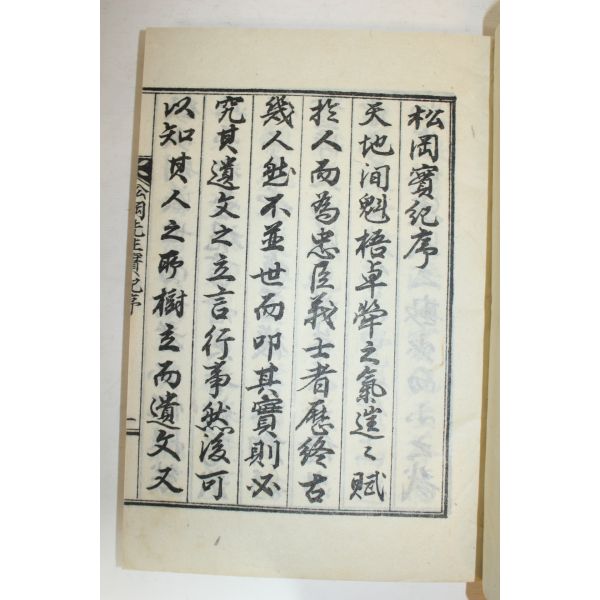 松岡實紀序
天地間魁梧卓犖之氣逞〻賦
於人而為忠臣義士者歷終古
幾人然不並世而叩其實則必
究其遺文之立言行事然後可
以知其人之所樹立而遺文又
松岡先生實紀序
一